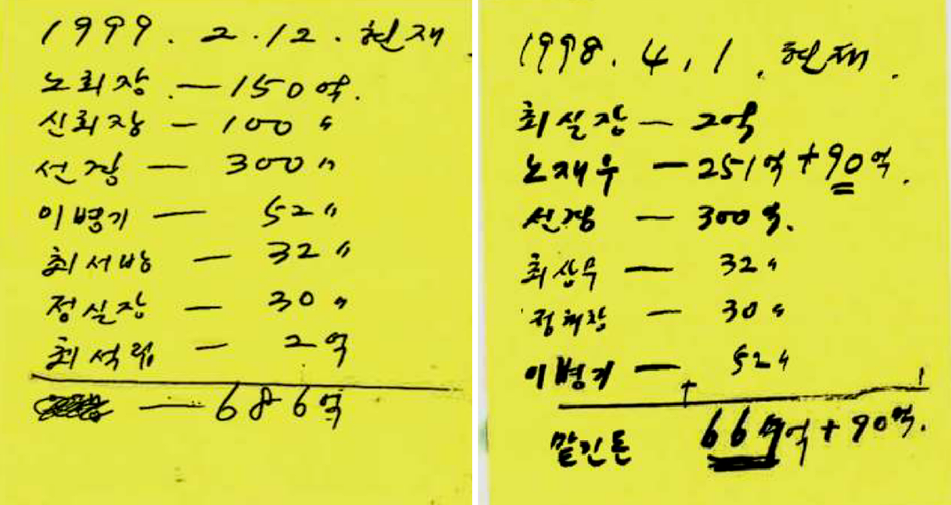 1999. 2. 12. 현재
노회장 — 150억.
신회장 — 100 〃
선경 — 300 〃
이병기 — 52 〃
최서방 — 32 〃
정실장 — 30 〃
최석립 — 2억
— 666억
1998. 4. 1. 현재.
최실장 — 2억
노재우 — 251억 + 90억.
선경 — 300억.
최상무 — 32 〃
정해창 — 30 〃
이병기 — 52 〃
맡긴돈 667억 + 90억.